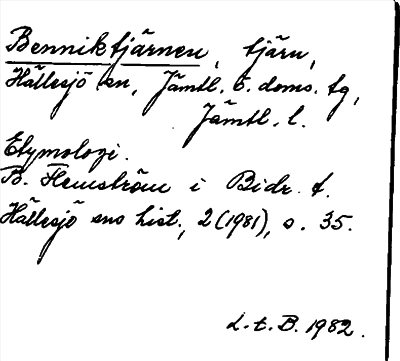 Benniktjärnen, tjärn,
Hällesjö sn, Jämtl. ö. doms. tg,
Jämtl. l.
Etymologi.
B. Flemström i Bidr. t.
Hällesjö sns hist., 2 (1981), s. 35.
L. t. B. 1982.